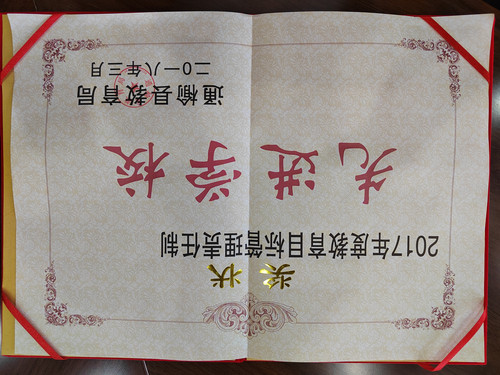 奖状
2017年度教育目标管理责任制
先进学校
通榆县教育局
二〇一八年三月